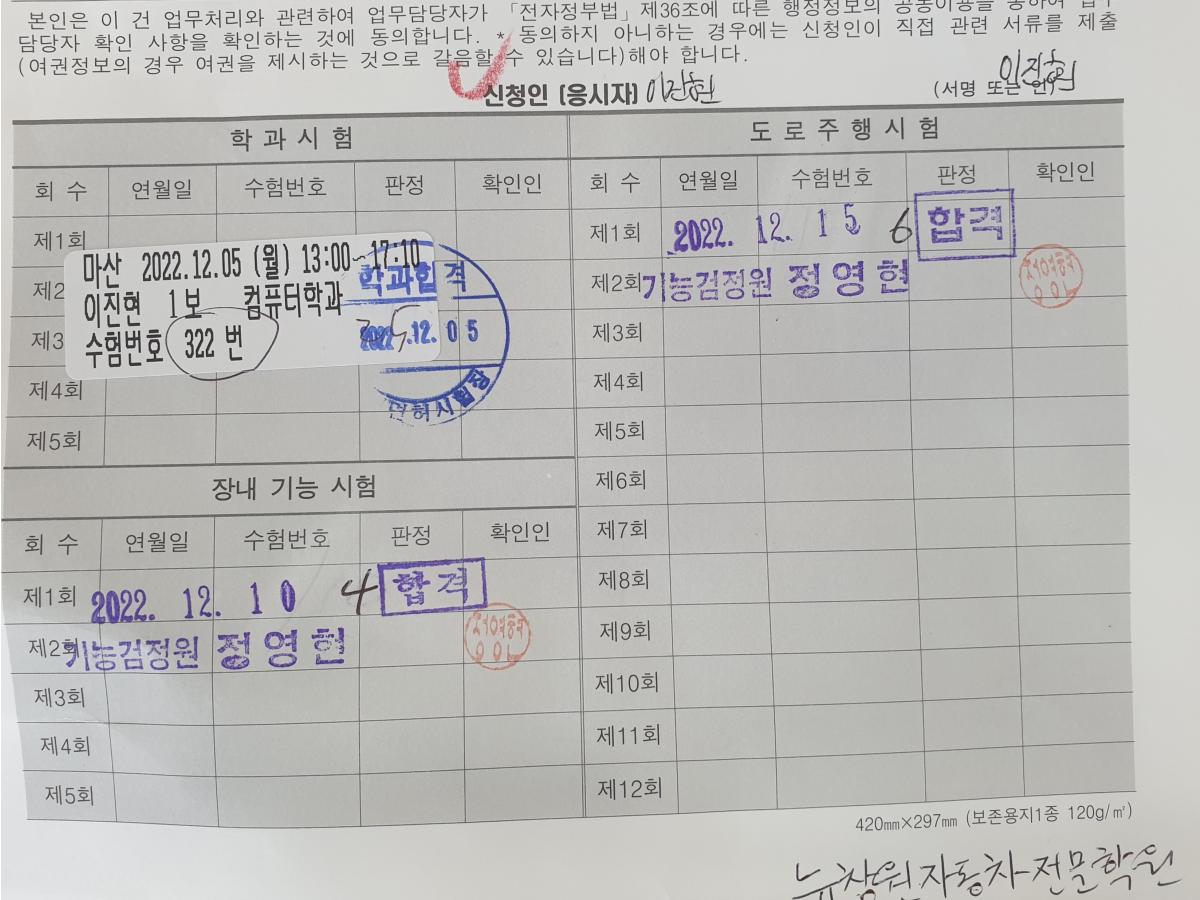 본인은 이 건 업무처리와 관련하여 업무담당자가 「전자정부법」 제36조에 따른 행정정보의 공동이용을 통하여
담당자 확인 사항을 확인하는 것에 동의합니다. * 동의하지 아니하는 경우에는 신청인이 직접 관련 서류를 제출
(여권정보의 경우 여권을 제시하는 것으로 갈음할 수 있습니다)해야 합니다.
신청인 (응시자) 이진현 (서명 또는 인) 이진현
학 과 시 험
회 수 연월일 수험번호 판정 확인인
제1회
마산 2022.12.05 (월) 13:00~17:10
제2
이진현 1보 컴퓨터학과
제3
수험번호 322 번
학과합격
2022.12.05
면허시험장
제4회
제5회
장내 기능 시험
회 수 연월일 수험번호 판정 확인인
제1회 2022. 12. 10 4 합격
제2회 기능검정원 정영현
제3회
제4회
제5회
도 로 주 행 시 험
회 수 연월일 수험번호 판정 확인인
제1회 2022. 12. 15 6 합격
제2회 기능검정원 정영현
제3회
제4회
제5회
제6회
제7회
제8회
제9회
제10회
제11회
제12회
420㎜×297㎜ (보존용지1종 120g/㎡)
뉴창원자동차전문학원